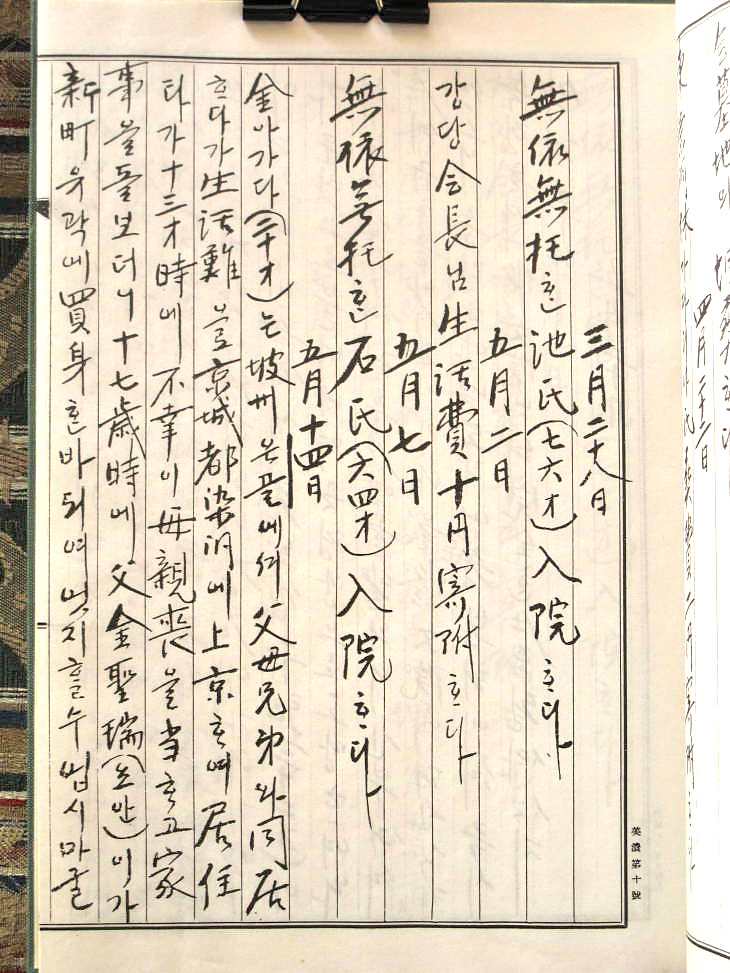 三月二十八日
無依無托한池氏(七六才)入院하다
五月二日
강당会長님生活費十円寄附하다
五月七日
無依無托한石氏(六四才)入院하다
五月十四日
金아가다(二十才)는坡州읍에서父母兄弟와同居
하다가生活難으로京城都染洞에上京하여居住
타가十三才時에不幸이母親喪을当하고家
事을돌보더니十七歳時에父金聖瑞(요안)이가
新町유곽에買身한바되여엇지할수업시마굴
英濃第十號
四月二十二日